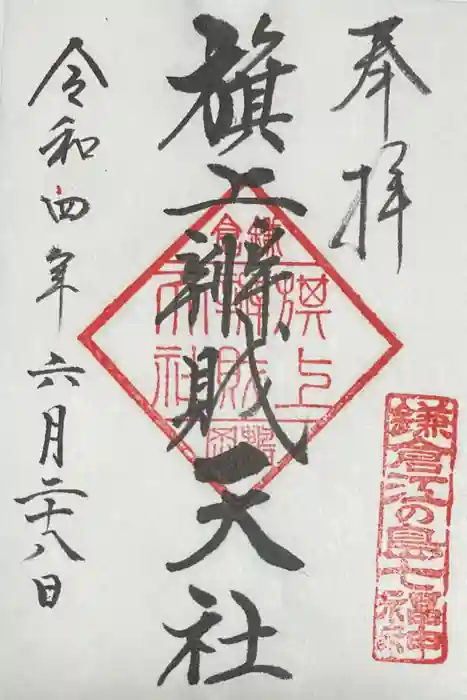 奉拝
旗上辨財天社
令和四年六月二十八日
鎌倉
旗上
辨財
天社
鎌倉江の島七福神